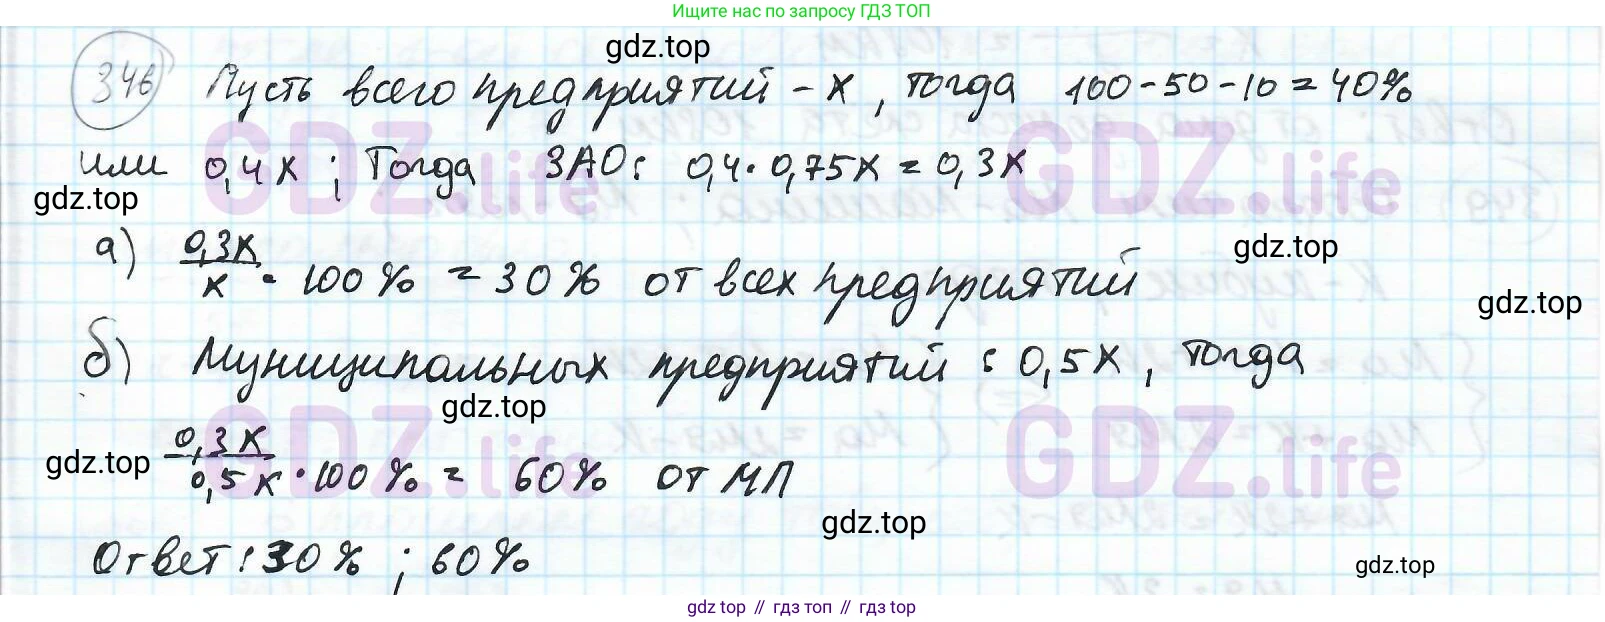 Ищите нас по запросу ГДЗ ТОП
gdz.top
346 Пусть всего предприятий - x, тогда 100-50-10=40%
или 0,4x ; Тогда ЗАО: 0,4·0,75x = 0,3x
gdz.top
GDZ.life GDZ.life
gdz.top
а) 0,3x/x · 100% = 30% от всех предприятий
gdz.top
б) Муниципальных предприятий : 0,5x, тогда
gdz.top
GDZ.life GDZ.life
gdz.top
0,3x/0,5x · 100% = 60% от МП
gdz.top
Ответ: 30% ; 60%
gdz.top
gdz.top // гдз топ // gdz.top